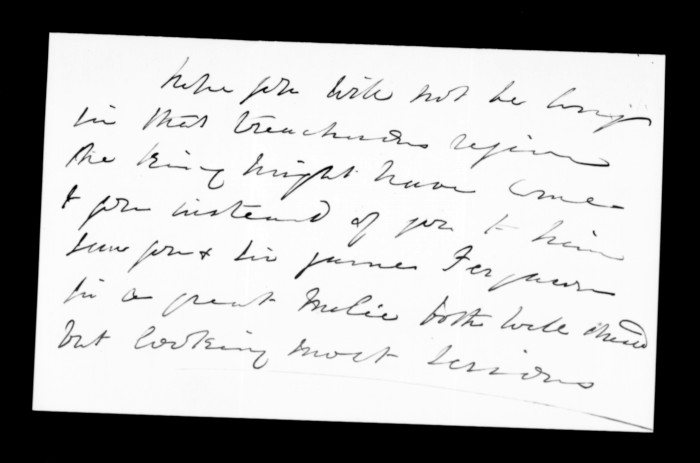 hope you will not be long
in that treacherous region
the King might have come
to you instead of you to him
saw you & Sir James Ferguson
in a great both well
but looking most serious